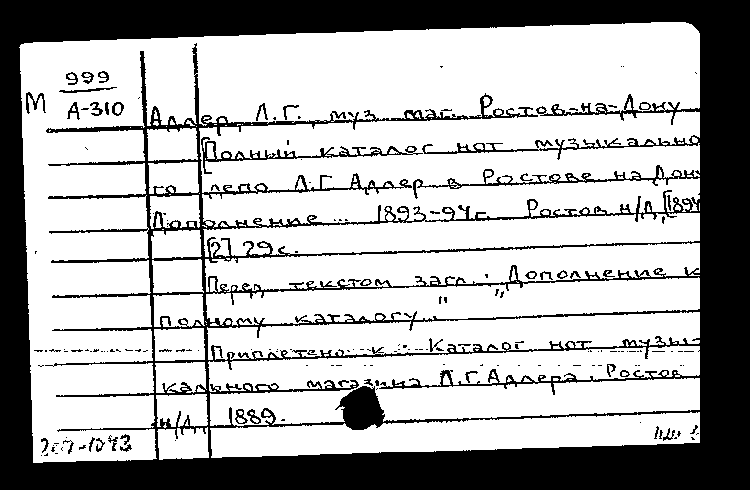 999
М А-310
Адлер, Л.Г., муз. маг. Ростов-на-Дону
[Полный каталог нот музыкально
го депо Л.Г. Адлер в Ростове на Дону
Дополнение... 1893-94г. Ростов н/Д, [1894
[2], 29 с.
Перед текстом загл.: „Дополнение к
полному каталогу."
Приплетено к: Каталог нот музы-
кального магазина Л.Г. Адлера. Ростов
н/Д., 1889.